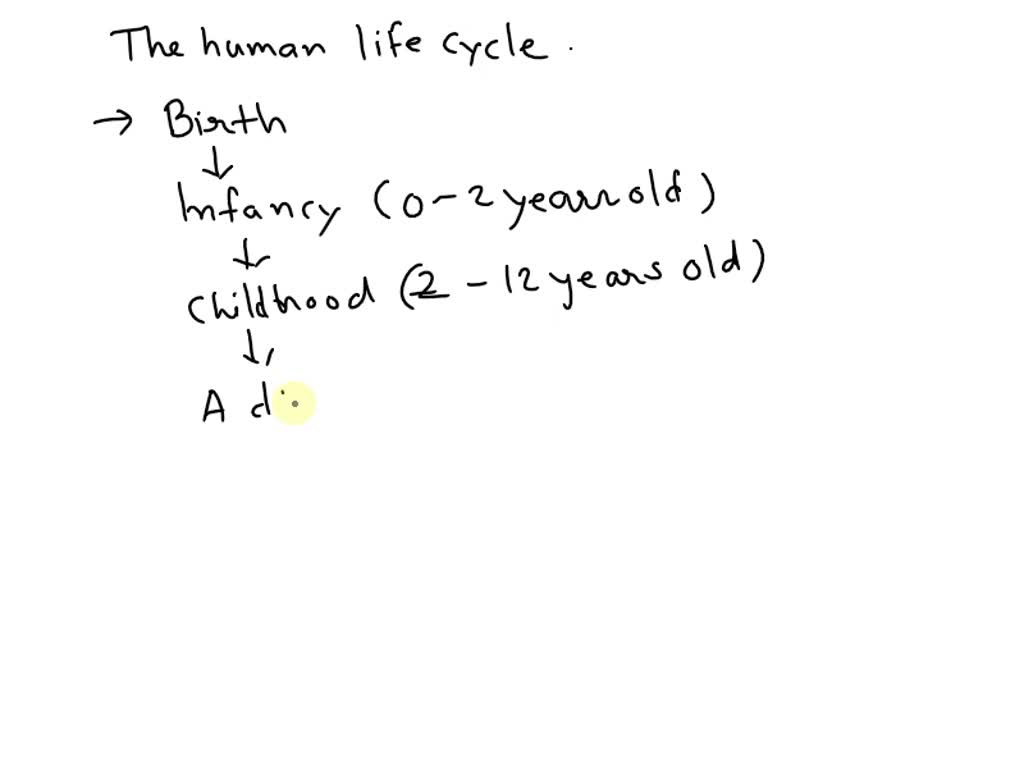 The human life cycle .
→ Birth
↓
Infancy (0-2 years old)
↓
Childhood (2-12 years old)
↓
Ad